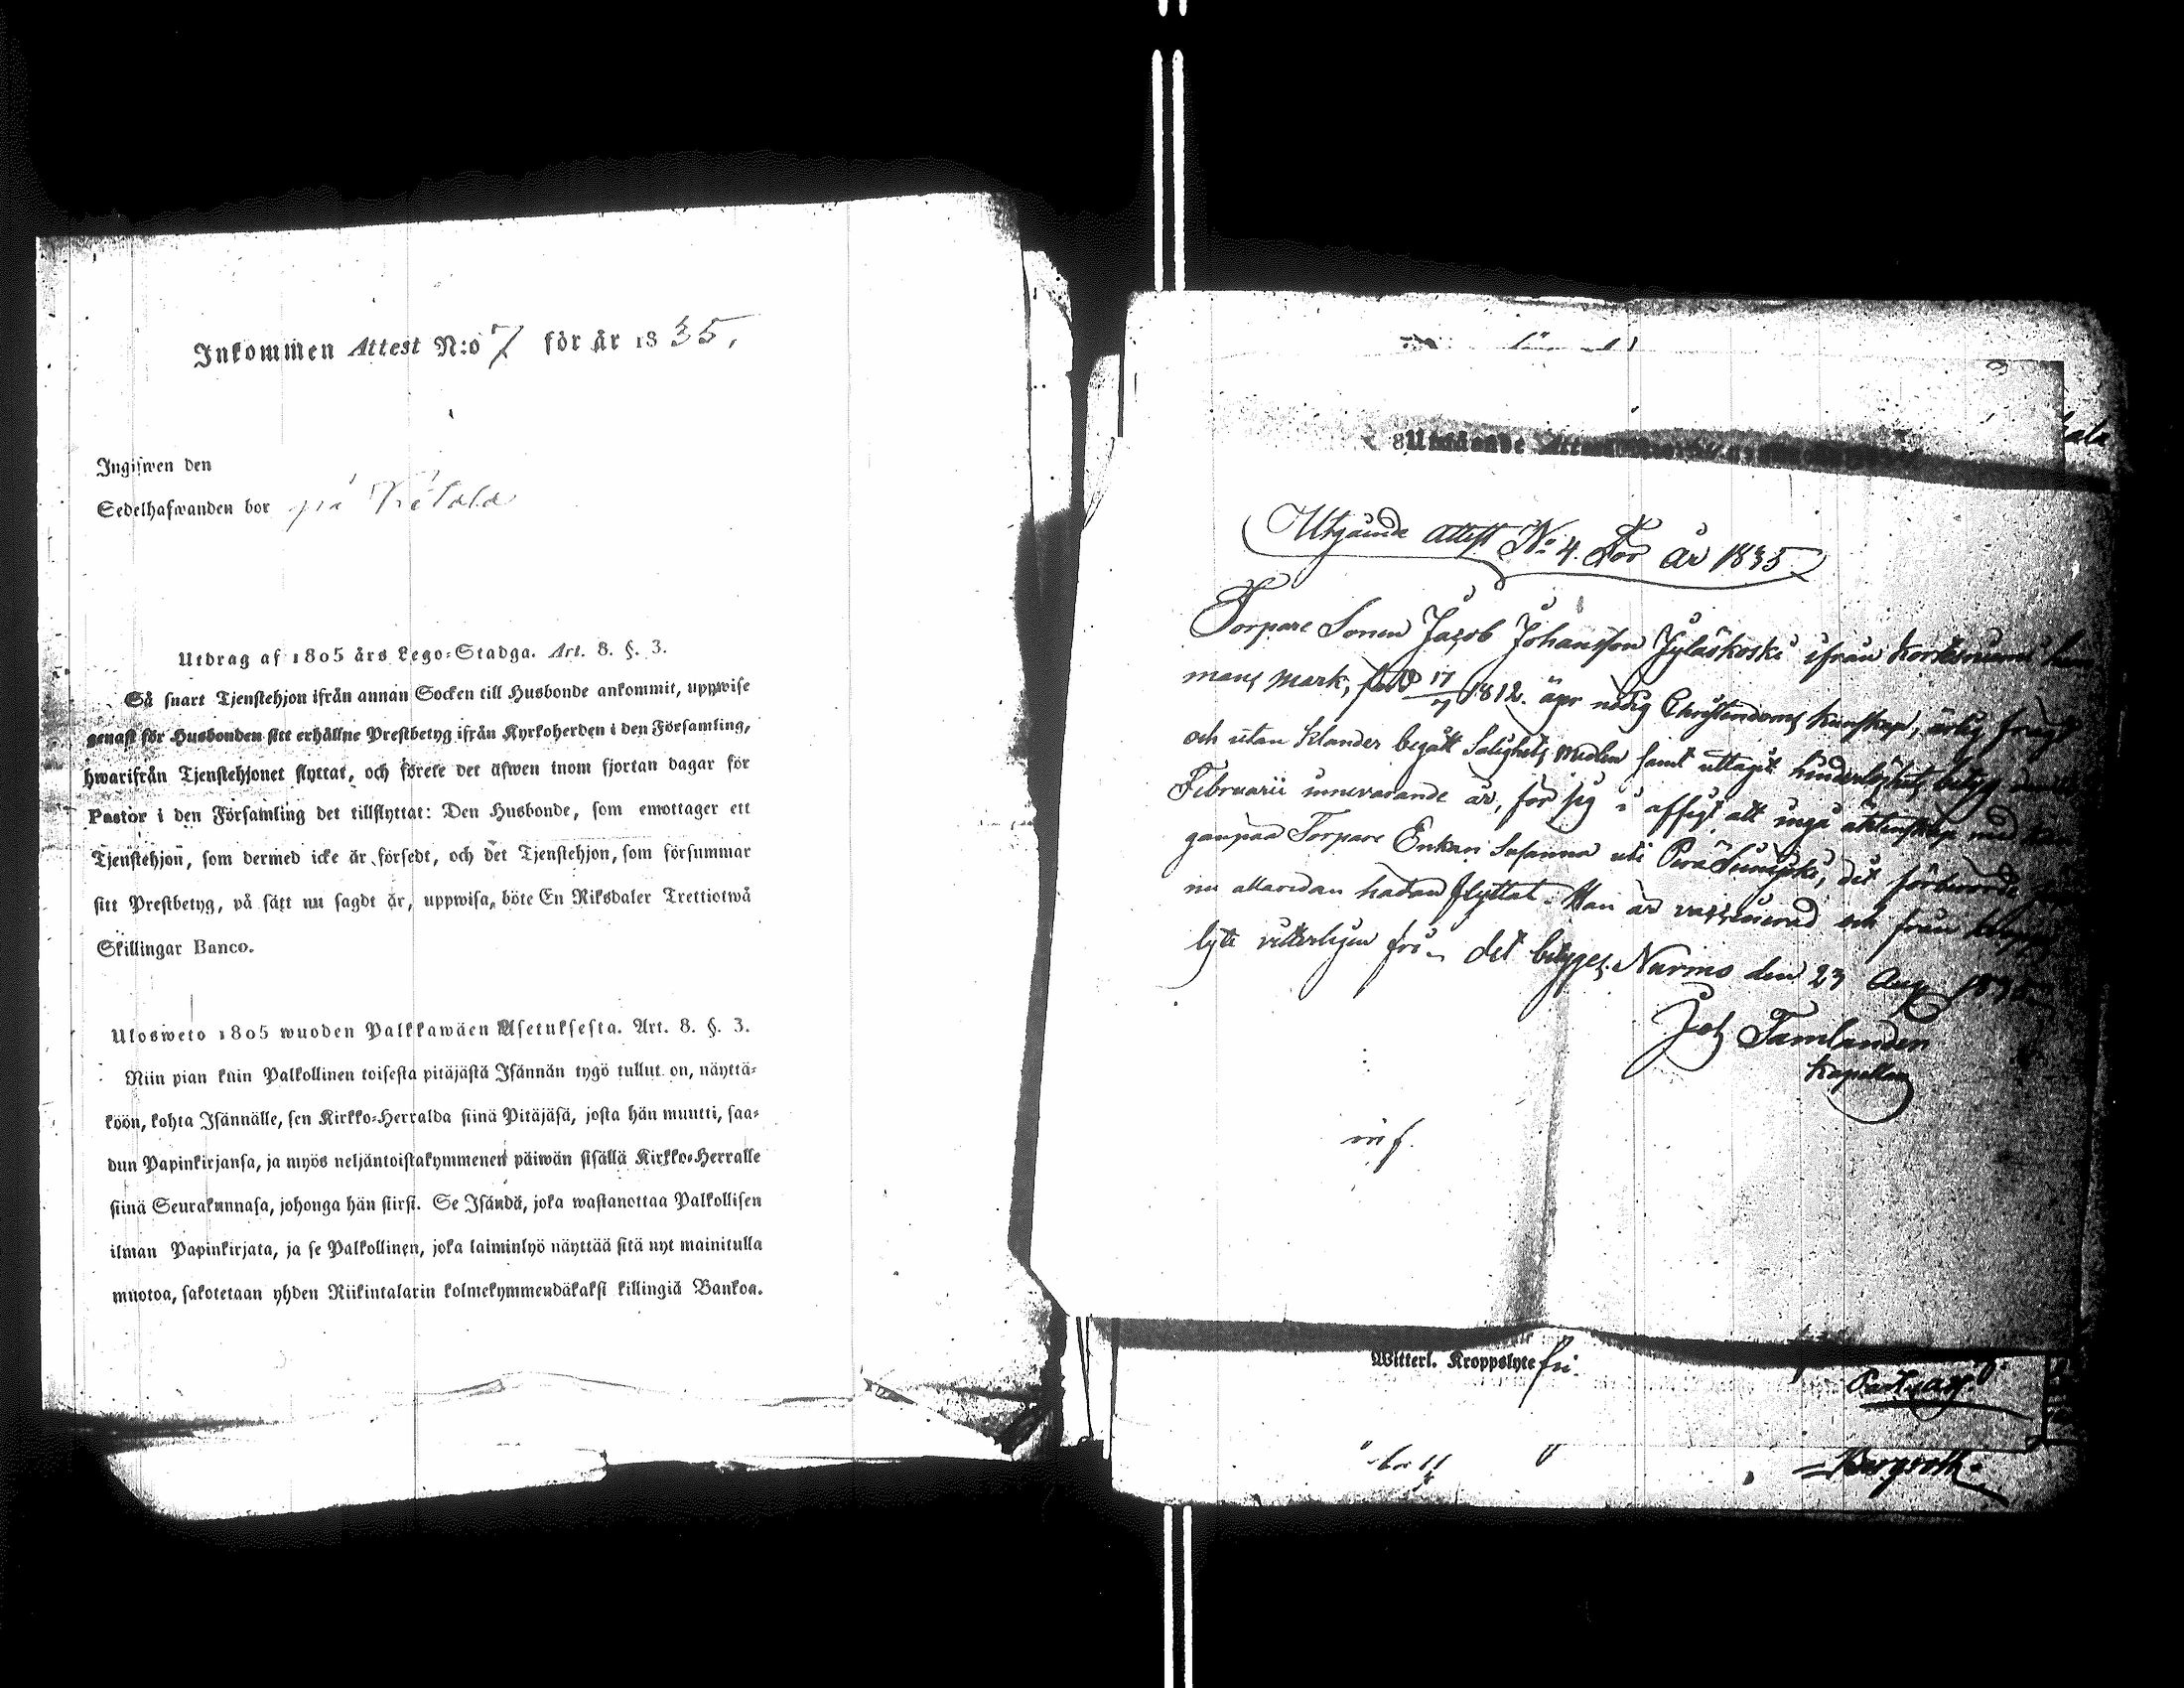 Inkommen Attest N:o 7 för år 1835.
Ingifwen den
Sedelhafwanden bor på Ketala
Utdrag af 1805 års Lego-Stadga. Art. 8. §. 3.
Så snart Tjenstehjon ifrån annan Socken till Husbonde ankommit, uppwise
genast för Husbonden sitt erhållne Prestbetyg ifrån Kyrkoherden i den Församling,
hwarifrån Tjenstehjonet flyttat, och förete det äfwen inom fjortan dagar för
Pastor i den Församling det tillflyttat: Den Husbonde, som emottager ett
Tjenstehjon, som dermed icke är försedt, och det Tjenstehjon, som försummar
sitt Prestbetyg, på sätt nu sagdt är, uppwisa, böte En Riksdaler Trettiotwå
Skillingar Banco.
Ulosweto 1805 wuoden Palkkawäen Asetuksesta. Art. 8. §. 3.
Niin pian kuin Palkollinen toisesta pitäjästä Isännän tygö tullut on, näyttä-
köön, kohta Isännälle, sen Kirkko-Herralda siinä Pitäjäsä, josta hän muutti, saa-
dun Papinkirjansa, ja myös neljäntoistakymmenen päiwän sisällä Kirkko-Herralle
siinä Seurakunnasa, johonga hän siirsi. Se Isändä, joka wastanottaa Palkollisen
ilman Papinkirjata, ja se Palkollinen, joka laiminlyö näyttää sitä nyt mainitulla
muotoa, sakotetaan yhden Riikintalarin kolmekymmendäkaksi killingiä Bankoa.
Utgående Attest
Utgående attest No 4. För år 1835
Torpare Sonen Jacob Johansson Jyläskoski ifrån
mans mark, född 17/7 1812. äger nödig Christendoms kunskap, ärlig
och utan klander begått Salighets medlen samt uttagit hinderlöshets betyg
Februarii innevarande år, för sig i afsigt att ingå äktenskap med
Torpare Enkan Susanna uti Perä det förhållande
nu allaredan hädan flyttat. Han är vaccinerad och från
lyte vitterligen fri. det betygas. Nurmo den 23 Aug 1835
Joh Tamlander
Kapellan
inf.
Witterl. Kroppslyte fri.
Bergroth.